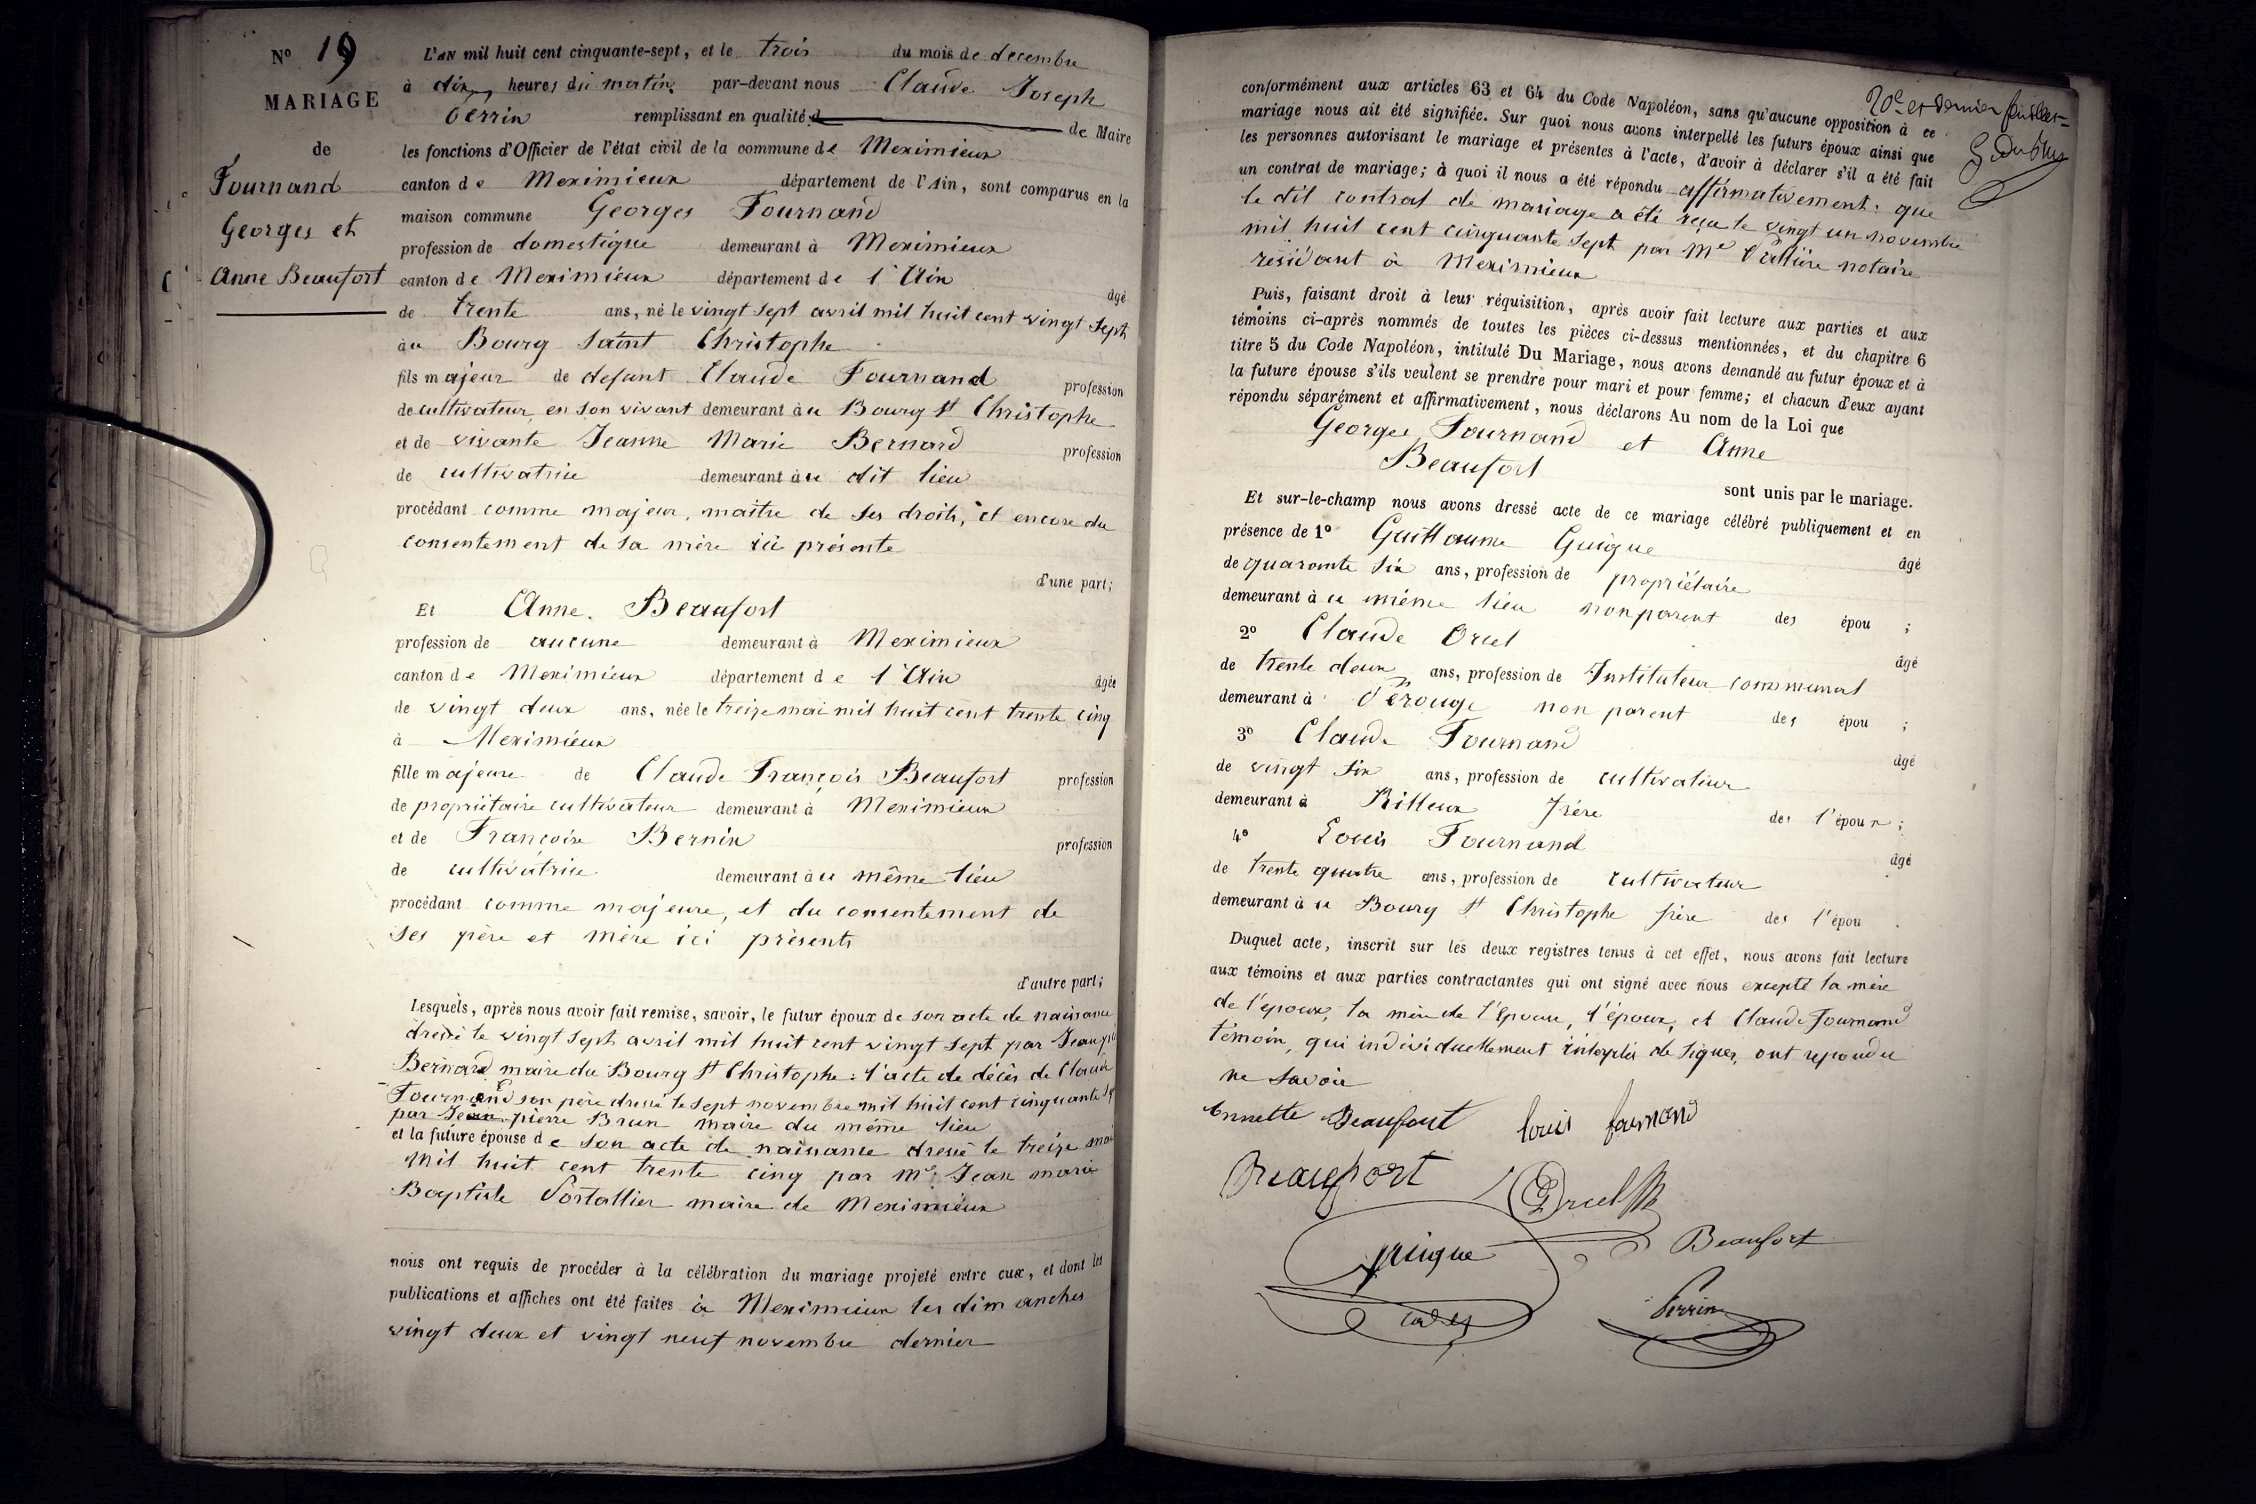 N° 19
MARIAGE
de
Fournand
Georges et
Anne Beaufort
L'AN mil huit cent cinquante-sept, et le trois du mois de decembre
à dix heures du matin par-devant nous Claude Joseph
Perrin remplissant en qualité de Maire
les fonctions d'Officier de l'état civil de la commune de Meximieux
canton de Meximieux département de l'Ain, sont comparus en la
maison commune Georges Fournand
profession de domestique demeurant à Meximieux
canton de Meximieux département de l'Ain âgé
de trente ans, né le vingt sept avril mil huit cent vingt sept
au Bourg Saint Christophe
fils majeur de defunt Claude Fournand profession
de cultivateur en son vivant demeurant au Bourg St Christophe
et de vivante Jeanne Marie Bernard profession
de cultivatrice demeurant au dit lieu
procédant comme majeur, maître de ses droits, et encore du
consentement de sa mère ici présente
d'une part;
Et Anne Beaufort
profession de aucune demeurant à Meximieux
canton de Meximieux département de l'Ain âgée
de vingt deux ans, née le treize mai mil huit cent trente cinq
à Meximieux
fille majeure de Claude François Beaufort profession
de propriétaire cultivateur demeurant à Meximieux
et de Françoise Bernin profession
de cultivatrice demeurant au même lieu
procédant comme majeure, et du consentement de
ses père et mère ici présents
d'autre part;
Lesquels, après nous avoir fait remise, savoir, le futur époux de son acte de naissance
dressé le vingt sept avril mil huit cent vingt sept par
Bernard maire du Bourg St Christophe: l'acte de décès de Claude
Fournand son père dressé le sept novembre mil huit cent cinquante
par Jean pierre Brun maire du même lieu
et la future épouse de son acte de naissance dressé le treize mai
mil huit cent trente cinq par Mr Jean marie
Baptiste Portallier maire de Meximieux
nous ont requis de procéder à la célébration du mariage projeté entre eux, et dont les
publications et affiches ont été faites à Meximieux les dimanches
vingt deux et vingt neuf novembre dernier
20e et dernier feuillet
conformément aux articles 63 et 64 du Code Napoléon, sans qu'aucune opposition à ce
mariage nous ait été signifiée. Sur quoi nous avons interpellé les futurs époux ainsi que
les personnes autorisant le mariage et présentes à l'acte, d'avoir à déclarer s'il a été fait
un contrat de mariage; à quoi il nous a été répondu affirmativement: que
le dit contrat de mariage a été reçu le vingt un novembre
mil huit cent cinquante sept par Me notaire
résidant à Meximieux
Puis, faisant droit à leur réquisition, après avoir fait lecture aux parties et aux
témoins ci-après nommés de toutes les pièces ci-dessus mentionnées, et du chapitre 6
titre 5 du Code Napoléon, intitulé Du Mariage, nous avons demandé au futur époux et à
la future épouse s'ils veulent se prendre pour mari et pour femme; et chacun d'eux ayant
répondu séparément et affirmativement, nous déclarons Au nom de la Loi que
Georges Fournand et Anne
Beaufort
sont unis par le mariage.
Et sur-le-champ nous avons dressé acte de ce mariage célébré publiquement et en
présence de 1° Guillaume Guigue âgé
de quarante six ans, profession de propriétaire
demeurant à u même lieu non parent des épou ;
2° Claude Orcel âgé
de trente deux ans, profession de Instituteur communal
demeurant à Pérouge non parent des épou ;
3° Claude Fournand âgé
de vingt six ans, profession de cultivateur
demeurant à Rilleux frère de l'époux;
4° Louis Fournand âgé
de trente quatre ans, profession de cultivateur
demeurant à u Bourg St Christophe frère de l'épou .
Duquel acte, inscrit sur les deux registres tenus à cet effet, nous avons fait lecture
aux témoins et aux parties contractantes qui ont signé avec nous excepté la mère
de l'époux, la mère de l'épouse, l'époux, et Claude Fournand
témoin, qui individuellement interpelés de signer, ont repondu
ne savoir
Annette Beaufort Louis fournand
Beaufort Orcel
Guigue Beaufort
Perrin